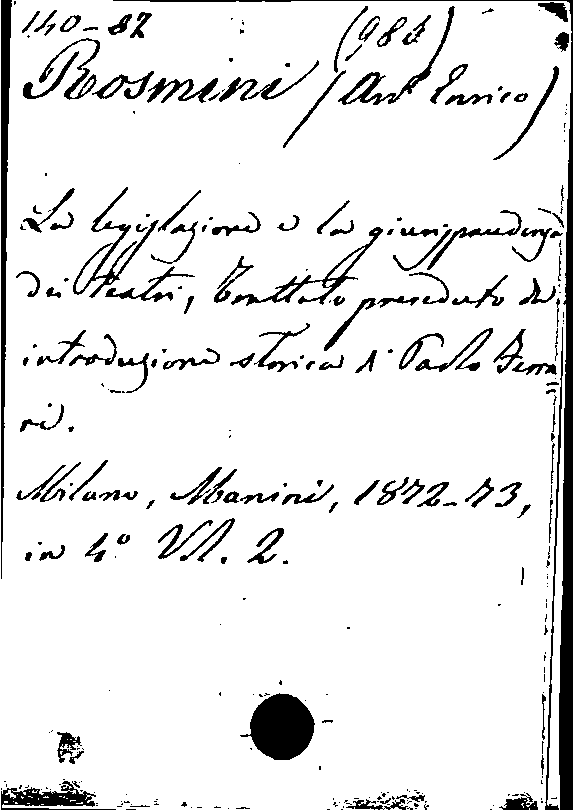 140-87 (985)
Rosmini (Avv. Enrico)
La legislazione e la giurisprudenza
dei teatri, Trattato preceduto da
introduzione storica di Paolo Ferra=
ri.
Milano, Manini, 1872-73,
in 4º Vol. 2.